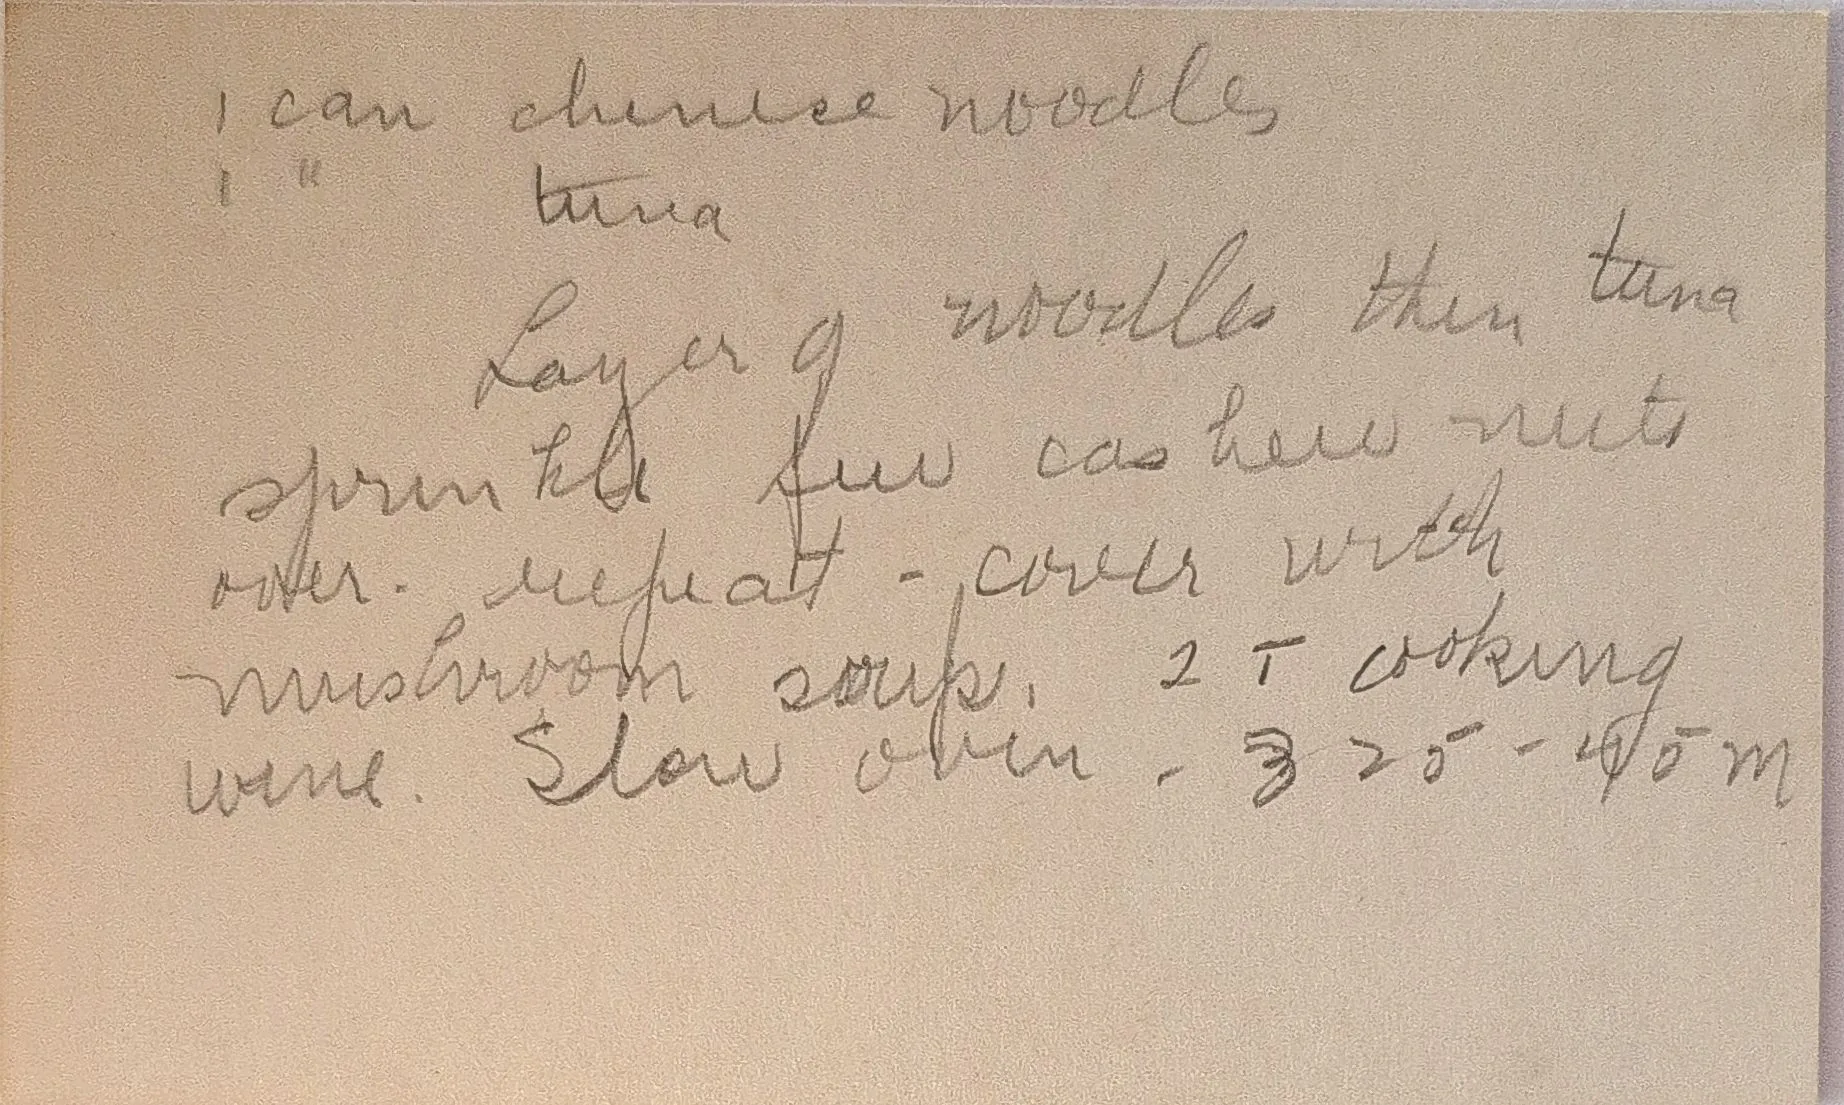 1 can chinese noodles
1 " tuna
Layer of noodles then tuna
sprinkle few cashew nuts
over. repeat - cover with
mushroom soup. 2 T cooking
wine. Slow oven - 325 - 45 m